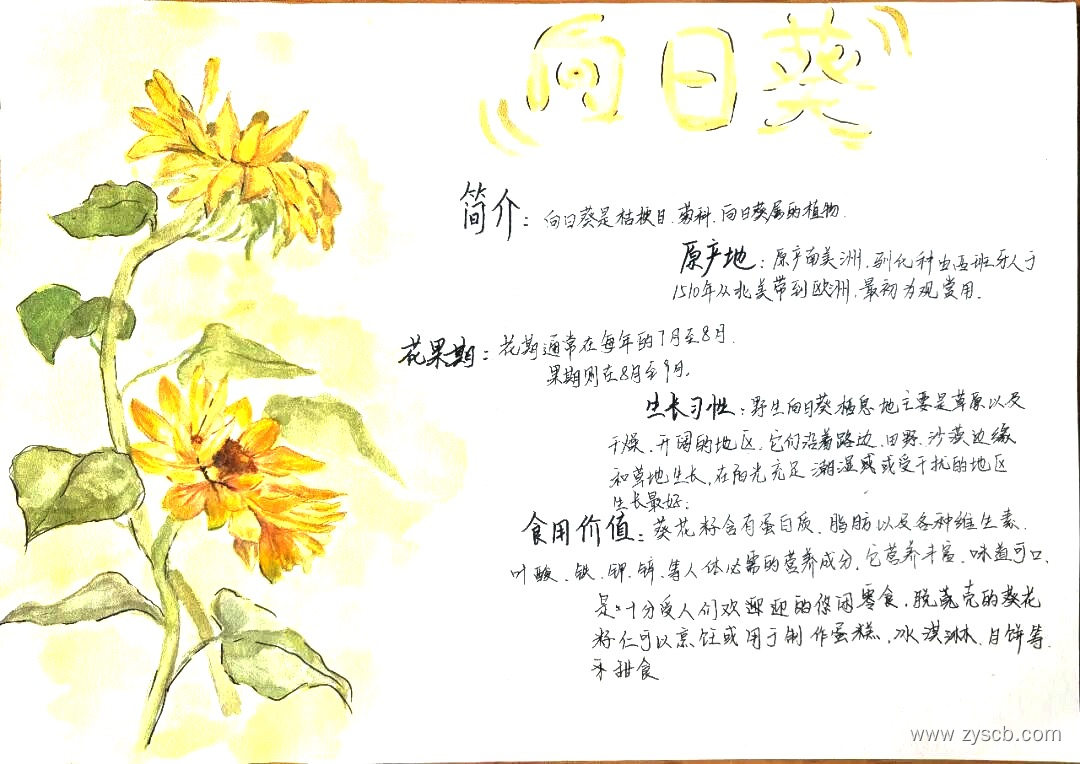 向日葵
简介：向日葵是桔梗目.菊科.向日葵属的植物.
原产地：原产南美洲.驯化种由西班牙人于
1510年从北美带到欧洲.最初为观赏用.
花果期：花期通常在每年的7月至8月.
果期则在8月至9月.
生长习性：野生向日葵栖息地主要是草原以及
干燥、开阔的地区.它们沿着路边、田野、沙漠边缘
和草地生长,在阳光充足潮湿或受干扰的地区
生长最好.
食用价值：葵花籽含有蛋白质、脂肪以及各种维生素、
叶酸、铁、钾、锌、等人体必需的营养成分,它营养丰富、味道可口,
是十分受人们欢迎的休闲零食,脱壳的葵花
籽仁可以烹饪或用于制作蛋糕、冰淇淋、月饼等
甜食
www.zyscb.com